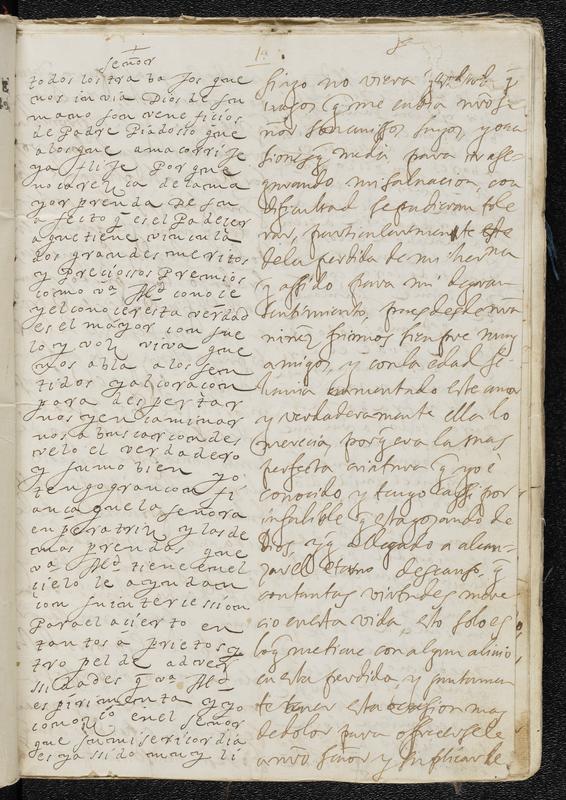 señor
todos los tra ba jos que
nos in via Dios de su
mano son vene ficios
de Padre Piadosso que
a los que ama corrije
ya flije Por que
no carelca de la ma
yor prenda De su
afecto q es el Padecer
a que tiene vin cula
dos grandes meritos
y Preciossos Premios
como va Mgd conoce
y el conocer esta verdad
es el mayor con sue
lo y voz viva que
nos abla a los sen
tidos y al coraçon
para des per tar
nos y en caminar
nos a buscar con des
velo el verdadero
y sumo bien yo
tengo gran con fi
anca que la señora
enperatriz y las de
mas prendas que
va Mgd tiene en el
cielo le ayudan
con su in ter cession
Para el acierto en
tantos a prietos y
tro pel de adver
ssidades q va Mgd
es pirimenta y yo
con el señor
que su misericordia
es y a ssido muy li
1
sino no viera q
traços q me enbia nro se
ñor son avissos suyos, y oca
siones q me da, para yr ase
gurando mi salvacion, con
dificultad se pudieran tole
rar, particularmente este
de la perdida de mi herma
y assido para mi de gran
sentimiento, pues desde nra
niñez fuimos sienpre muy
amigos, y con la edad se
havia aumentado este amor
y verdaderamente ella lo
merecia, porq era la mas
perfecta criatura q yo e
conocido y tengo cassi por
infalible q esta goçando de
Dios, y q a llegado a alcan-
çar el eterno descanso, q
con tantas virtudes mere
cio en esta vida, esto solo es
lo q me tiene con algun alivio
en esta perdida, y juntamen
te tener esta ocasion mas
de dolor para ofrecersele
a nro señor y suplicarle